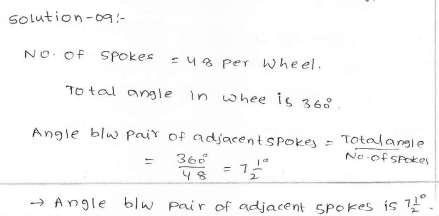 Solution-09:-
No. of spokes = 48 per wheel.
Total angle in whee is 360°.
Angle b/w pair of adjacent spokes = Total angle / No. of spokes
= 360° / 48 = 7 1/2°
→ Angle b/w pair of adjacent spokes is 7 1/2°.